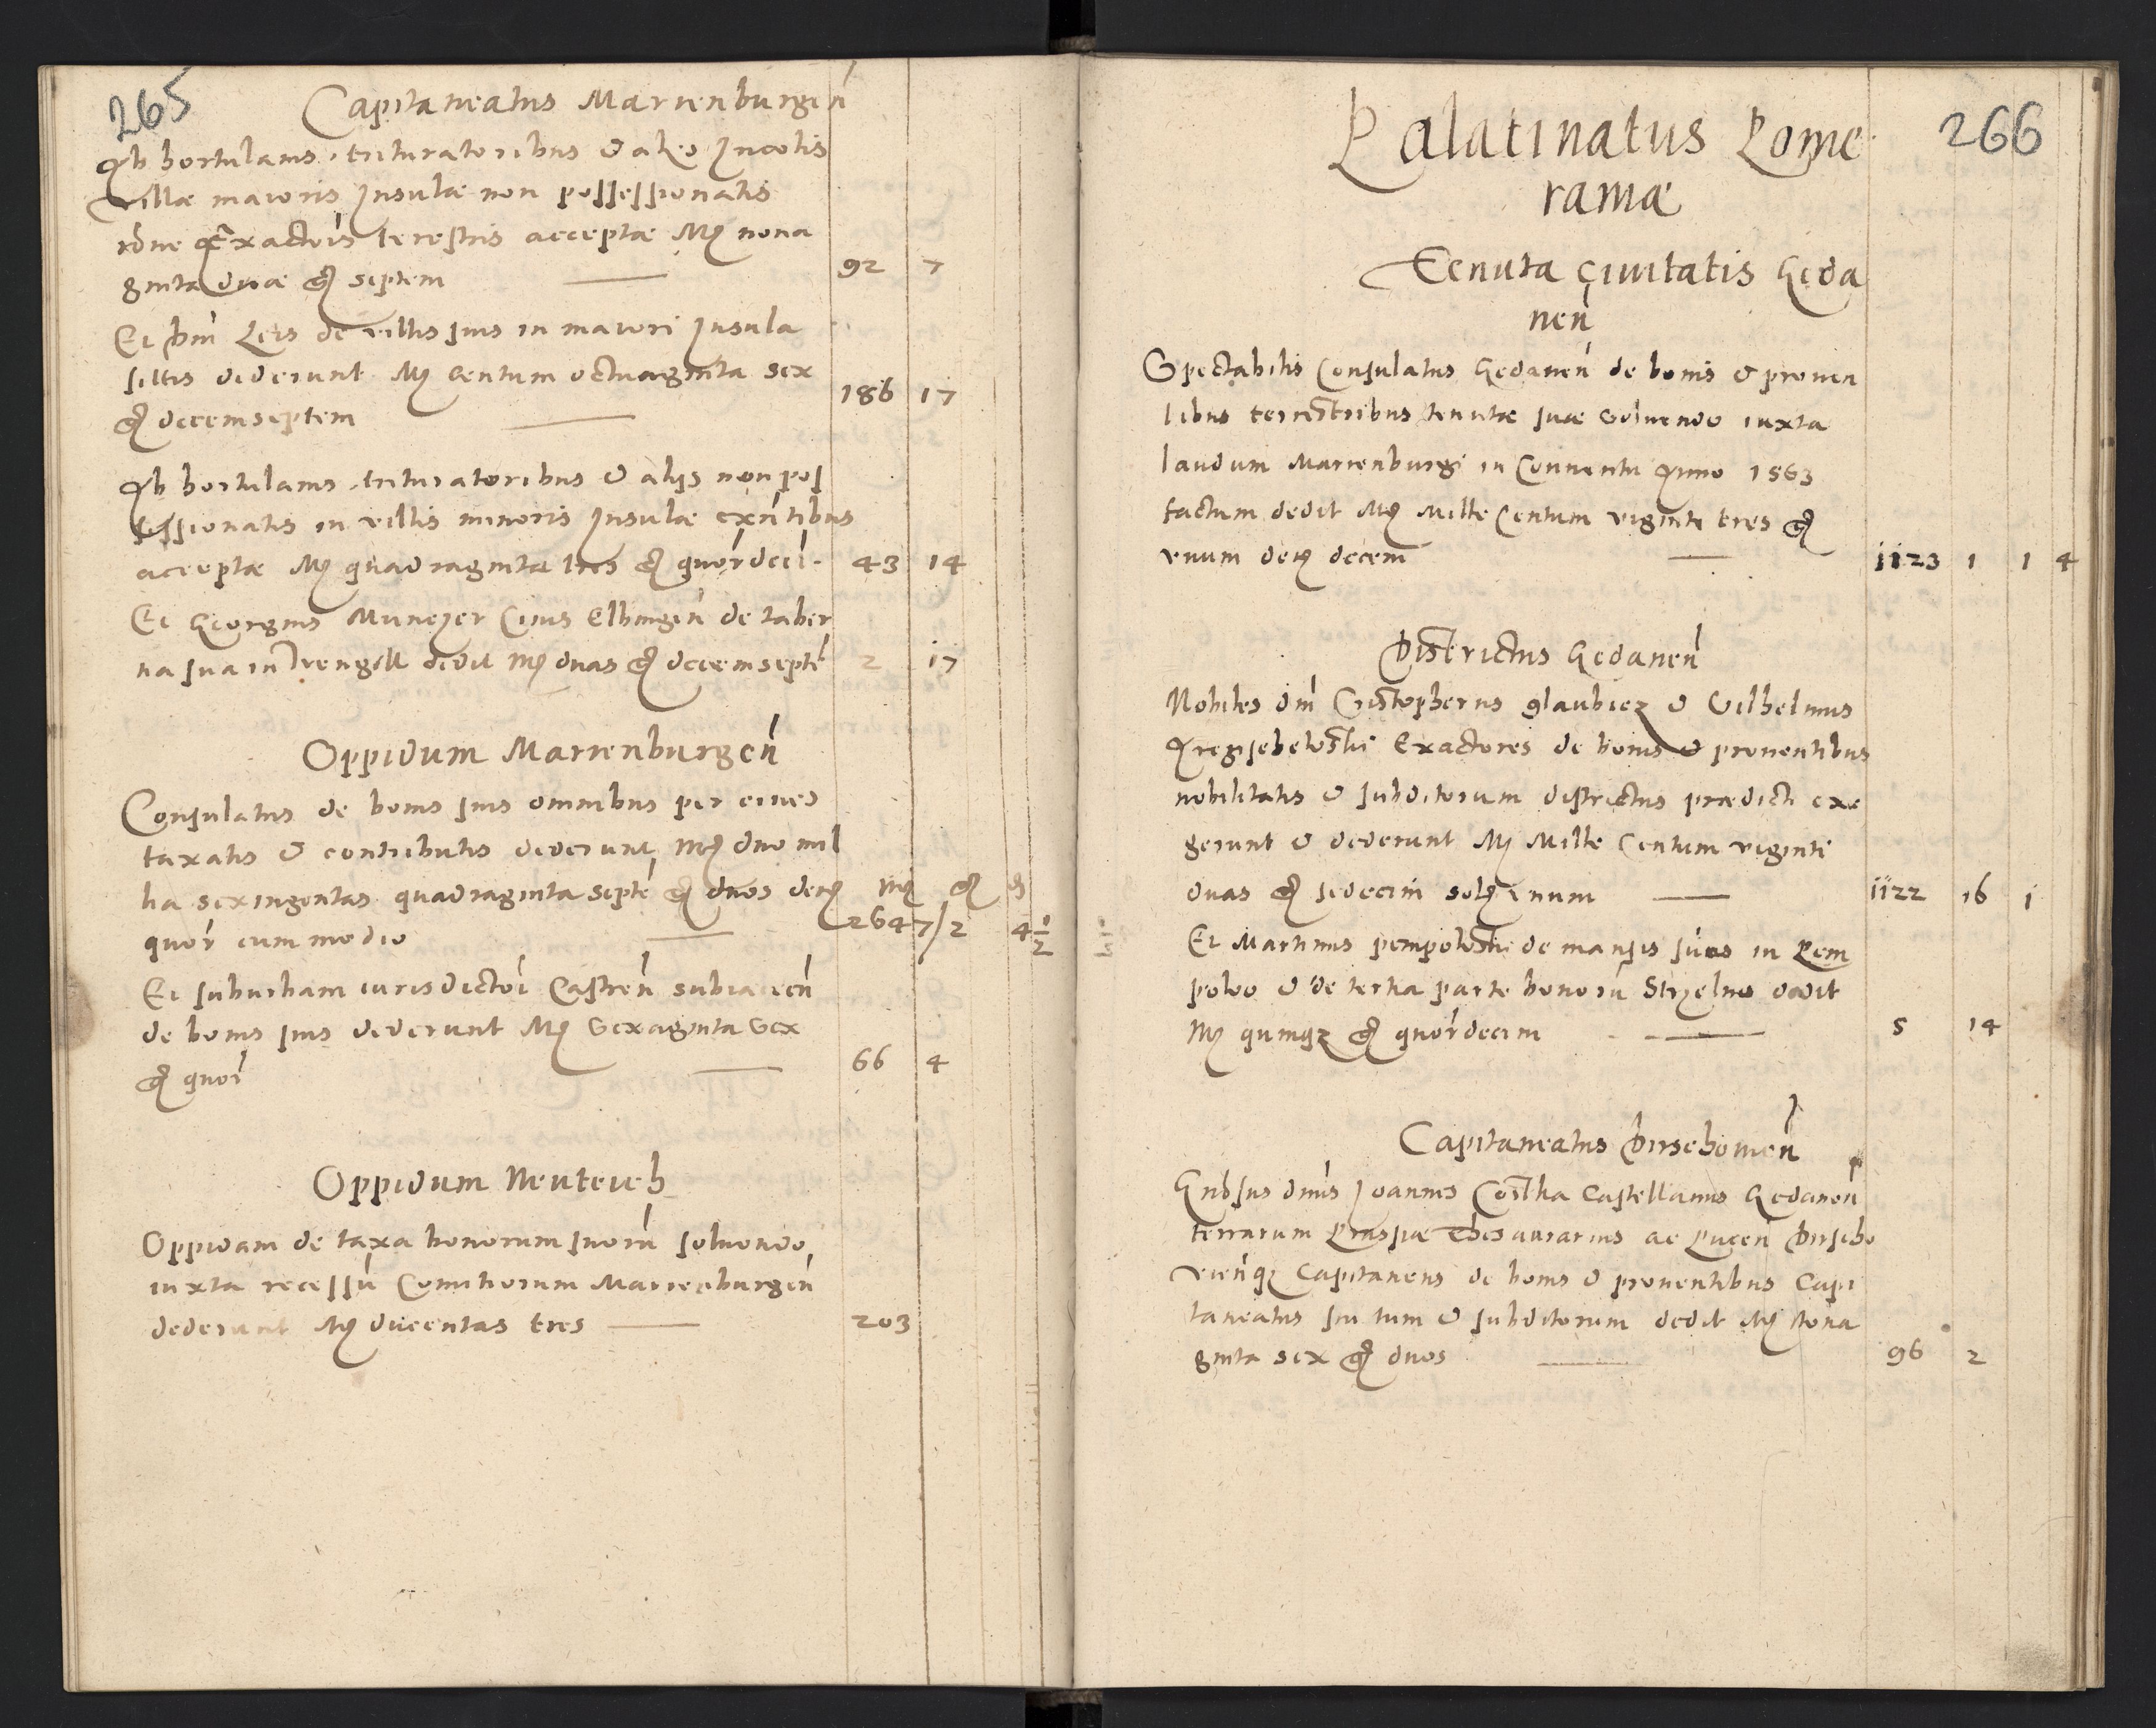 265
Capitaneatus Marienburgen
Ab hortulanis, trituratoribus & alijs Incolis
villæ maioris Insulæ non possessionatis
exactoris terestris acceptæ Mȩ nona
ginta duæ gͦ septem 92 7
Et de villis suis in maiori Insula
sittis dederunt Mȩ Centum octuaginta sex
gͦ decemseptem 186 17
Ab hortulanis trituratoribus & alijs non pos
sessionatis in villis minoris Insulæ exñtibus
acceptæ Mȩ quadraginta tres gͦ quordeci 43 14
Et Georgius Munczer Civis Elbingen de taber
na sua in dedit Mȩ duas gͦ decemseptē 2 17
Oppidum Marienburgen
Consulatus de bonis suis omnibus per cives
taxatis & contributis dederunt Mȩ duo mil
lia sexingentas quadraginta septē gͦ duos deȵ
quor cum medio 2647/2 4 1/2
Et suburbani iurisdictōi Castren subiacen
de bonis suis dederunt Mȩ Sexaginta Sex
gͦ quor 66 4
Oppidum Neuteich
Oppidani de taxa bonorum suorū soluendo
iuxta recessū Comitiorum Marienburgen
dederunt Mȩ ducentas tres 203
266
Palatinatus Pome
raniæ
Tenuta civitatis Geda
nen
Spectabilis Consulatus Gedanen de bonis & proven
tibus terrestribus tenutæ suæ Solvendo iuxta
laudum Marienburgi in Conventu Anno 1563
factum dedit Mȩ Mille Centum viginti tres gͦ
unum deȵ decem 1123 1 1 4
Districtus Gedanen
Nobiles Dni Cristopherus glaubicz & Vilhelmus
Exactores de bonis & proventibus
nobilitatis & subditorum districtus prædicti exe
gerunt & dederunt Mȩ Mille Centum viginti
duas gͦ sedecim solȩ unum 1122 16 1
Et Martinus pempowski de mansis suis in Pem
powo & de tertia parte bonorū Strzelno dedit
Mȩ quinqȝ gͦ quordecim 5 14
Capitaneatus Dirschovien
Gnosus dnus Joannes Costka Castellanus Gedanen
terrarum Prussiæ Thesaurarius ac Pucen Dirscho
vienqȝ Capitaneus de bonis & proventibus Capi
taneatus sui tum & subditorum dedit Mȩ Nona
ginta sex gͦ duos 96 2